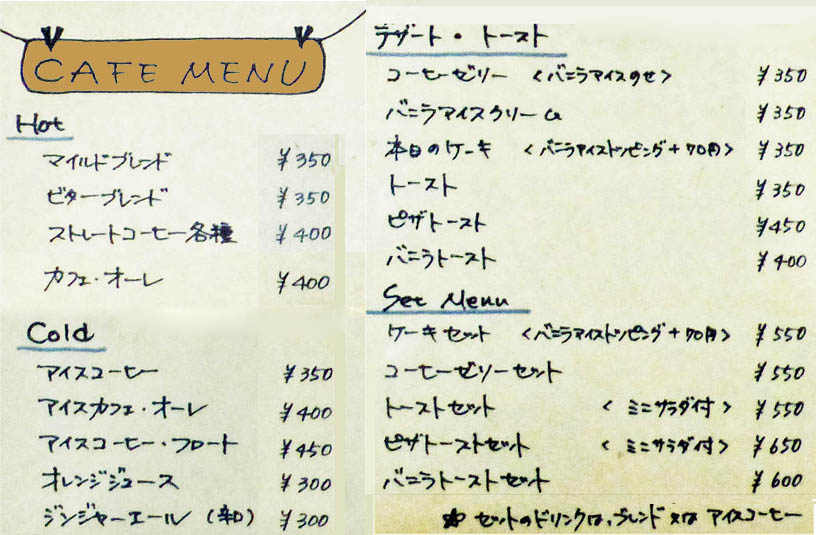 CAFE MENU
Hot
マイルドブレンド ¥350
ビターブレンド ¥350
ストレートコーヒー各種 ¥400
カフェ・オーレ ¥400
Cold
アイスコーヒー ¥350
アイスカフェ・オーレ ¥400
アイスコーヒー・フロート ¥450
オレンジジュース ¥300
ジンジャーエール (辛口) ¥300
デザート・トースト
コーヒーゼリー <バニラアイスのせ> ¥350
バニラアイスクリーム ¥350
本日のケーキ <バニラアイストッピング+70円> ¥350
トースト ¥350
ピザトースト ¥450
バニラトースト ¥400
Set Menu
ケーキセット <バニラアイストッピング+70円> ¥550
コーヒーゼリーセット ¥550
トーストセット <ミニサラダ付> ¥550
ピザトーストセット <ミニサラダ付> ¥650
バニラトーストセット ¥600
☆ セットのドリンクは、ブレンド又はアイスコーヒー